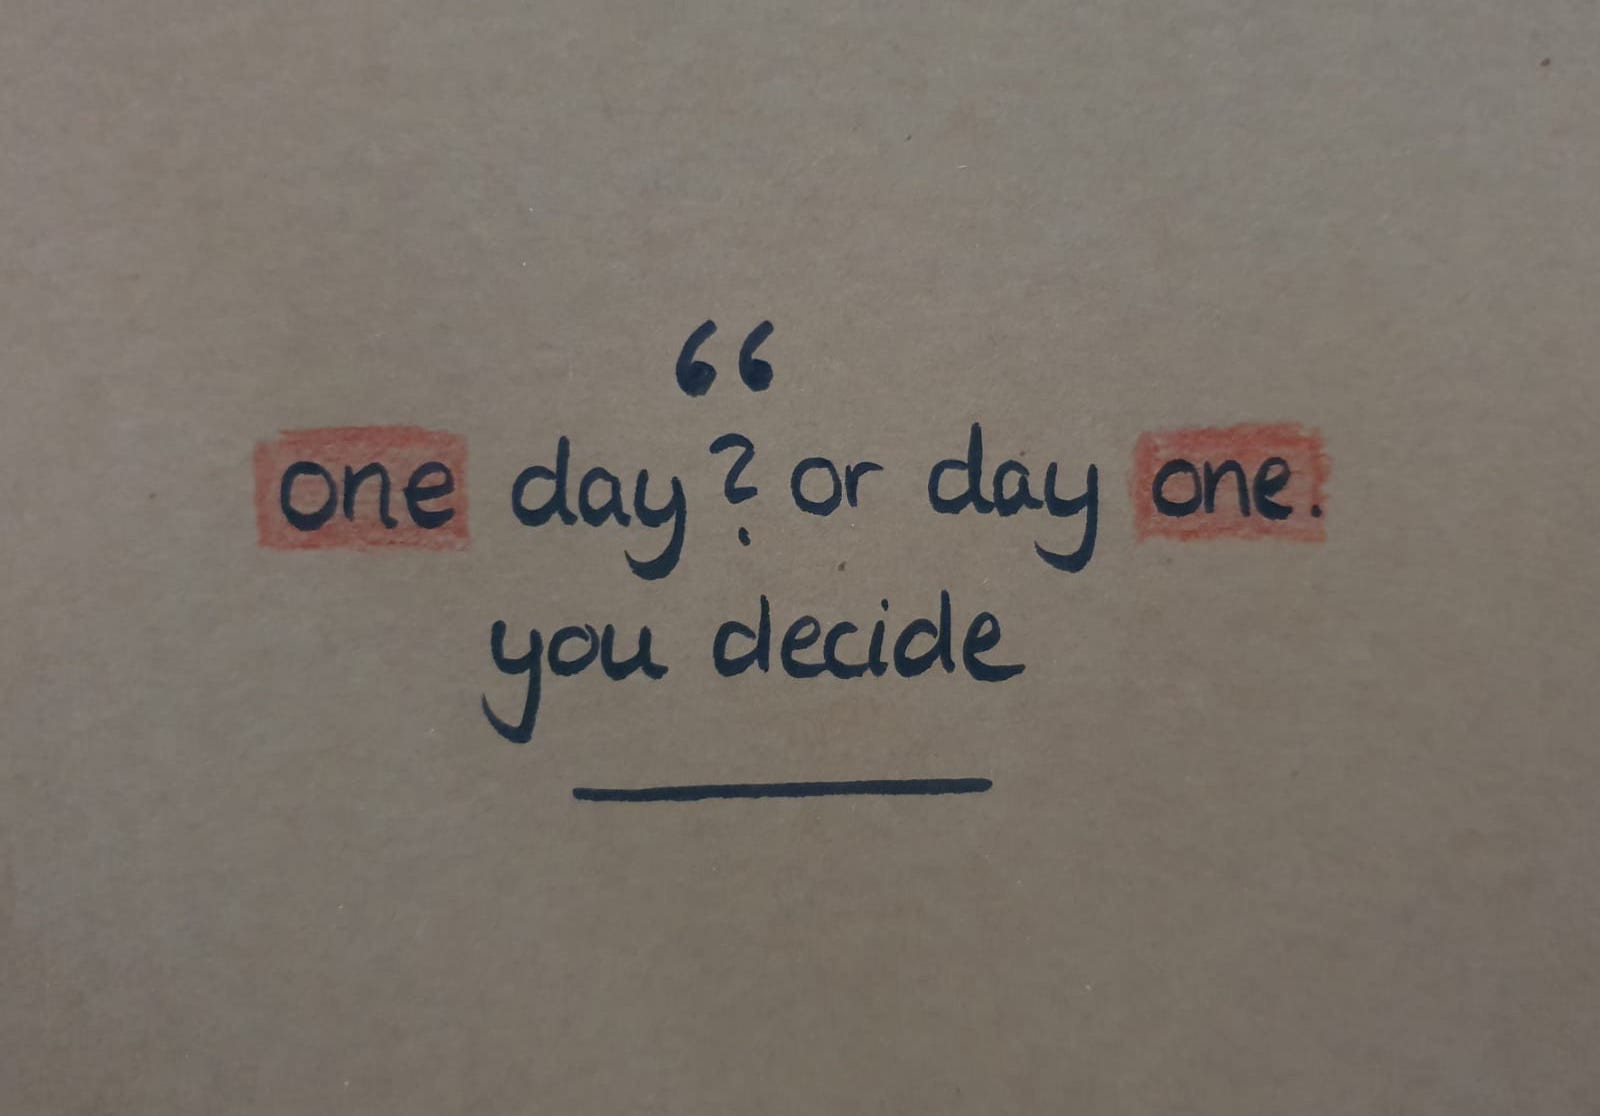 “
one day? or day one.
you decide